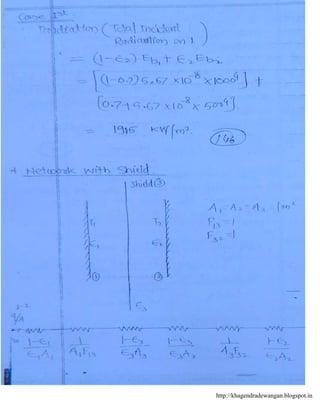 Case Ist
Irradiation (Total Incident
Radiation on 1)
= (1-ε₂) Eb₁ + ε₂ Eb₂
= [(1-0.7) 5.67 × 10⁻⁸ × 1000⁴] +
[0.7 × 5.67 × 10⁻⁸ × 500⁴]
= 19.5 kW/m².
146
* Network with Shield
Shield ③
A₁ = A₂ = A₃ = 1m²
F₁₃ = 1
F₃₂ = 1
T₁ T₂
ε₁ ε₂
① ②
ε₃
q/A
1-ε₁/ε₁A₁ 1/A₁F₁₃ 1-ε₃/ε₃A₃ 1-ε₃/ε₃A₃ 1/A₃F₃₂ 1-ε₂/ε₂A₂
http://khagendradewangan.blogspot.in